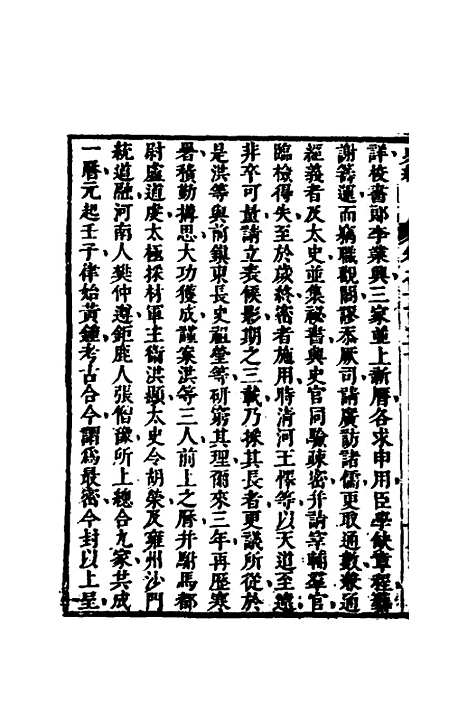 詳校書郎李業興三家並上新曆各求申用臣學缺章程藝
謝筌運而竊職觀閣謬忝厥司請廣訪諸儒更取通數兼通
經義者及太史並集祕書與史官同驗疎密并請宰輔羣官
臨檢得失至於歲終密者施用時清河王懌等以天道至遠
非卒可量請立表候影期之三載乃採其長者更議所從於
是洪等與前鎮東長史祖瑩等研窮其理爾來三年再歷寒
暑積勤搆思大功獲成謹案洪等三人前上之曆并駙馬都
尉盧道虔太極採材軍主衞洪顯太史令胡榮及雍州沙門
統道融河南人樊仲遵鉅鹿人張僧豫所上總合九家共成
一曆元起壬子律始黃鐘考古合今謂爲最密今封以上呈